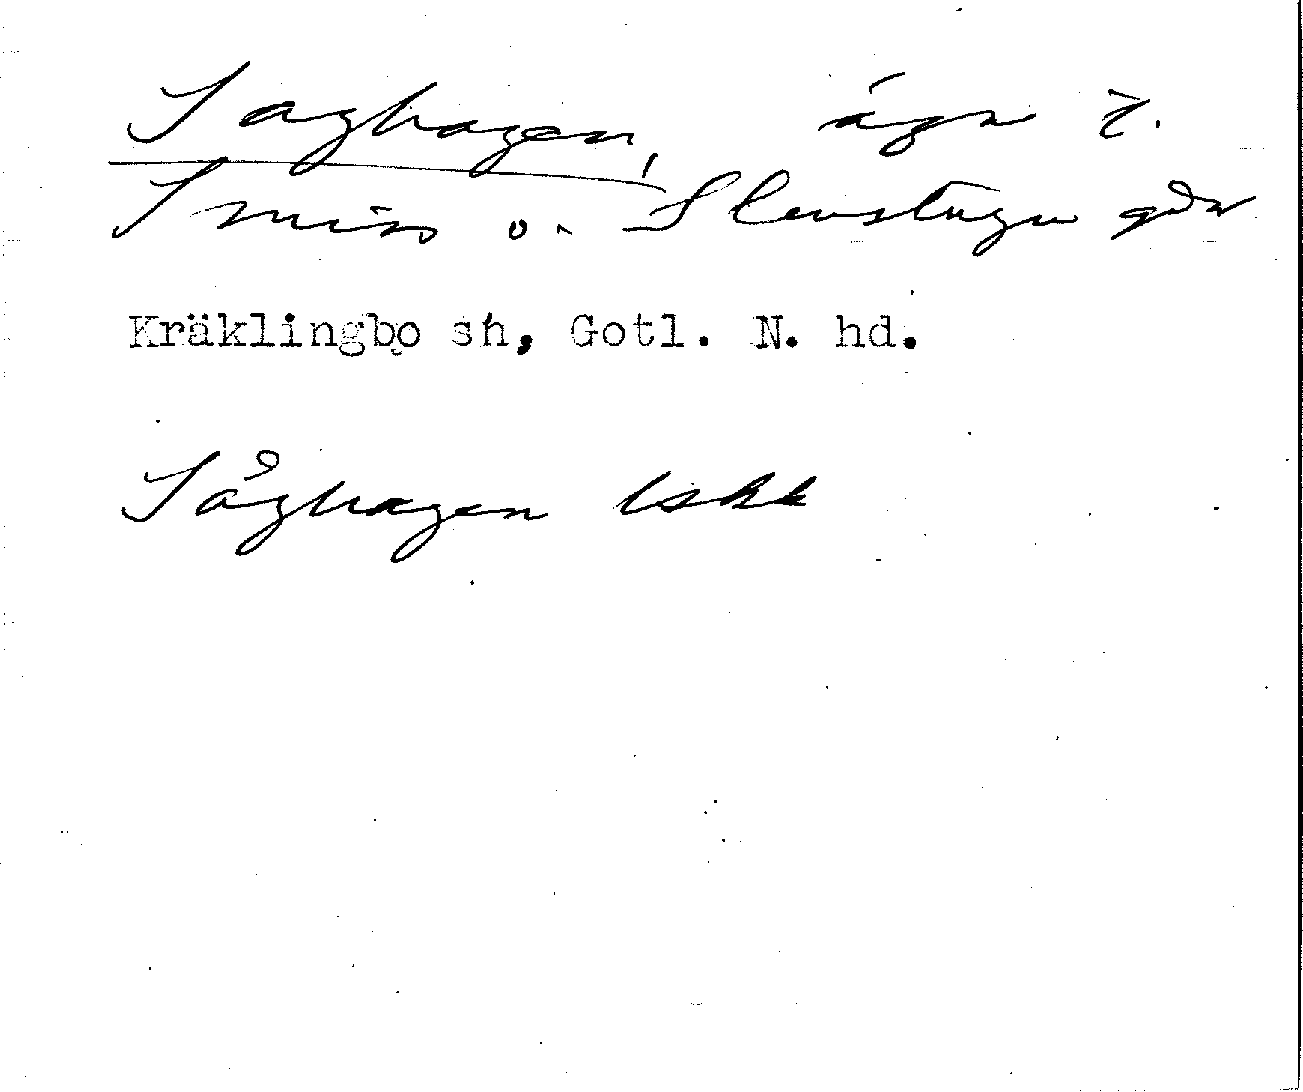 Saghagen, ägor t.
Smiss o. Slentugu gdr
Kräklingbo sh, Gotl. N. hd.
Såghagen lskk